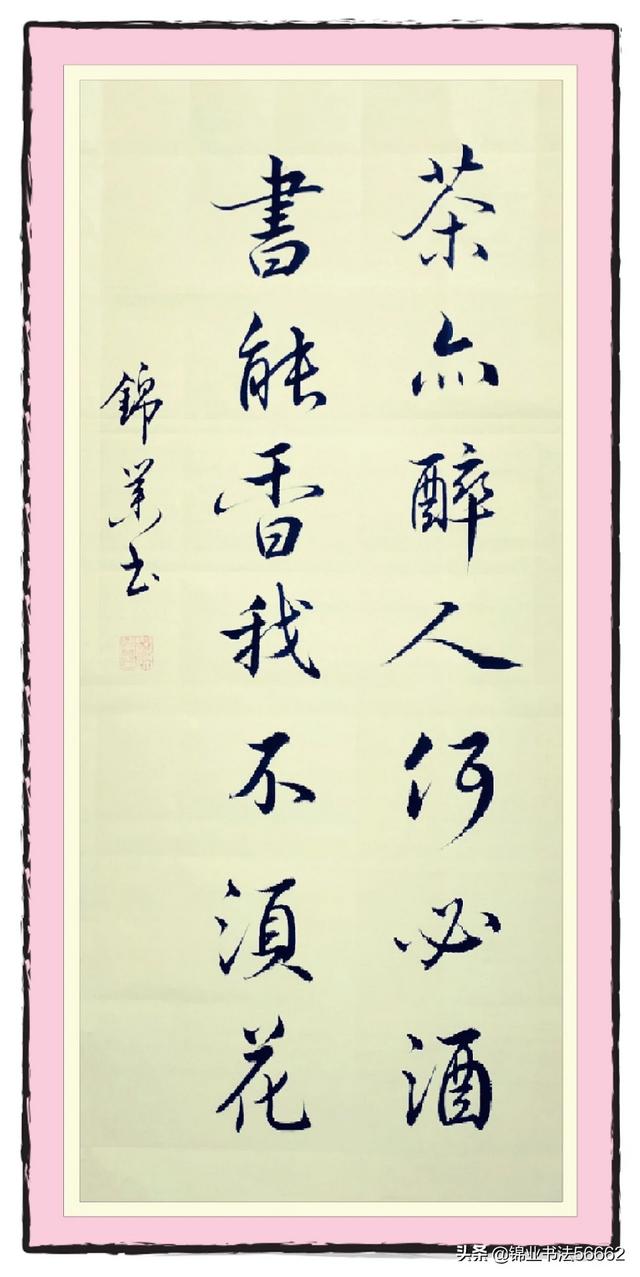 茶亦醉人何必酒
書能香我不須花
錦業书
头条 @锦业书法56662